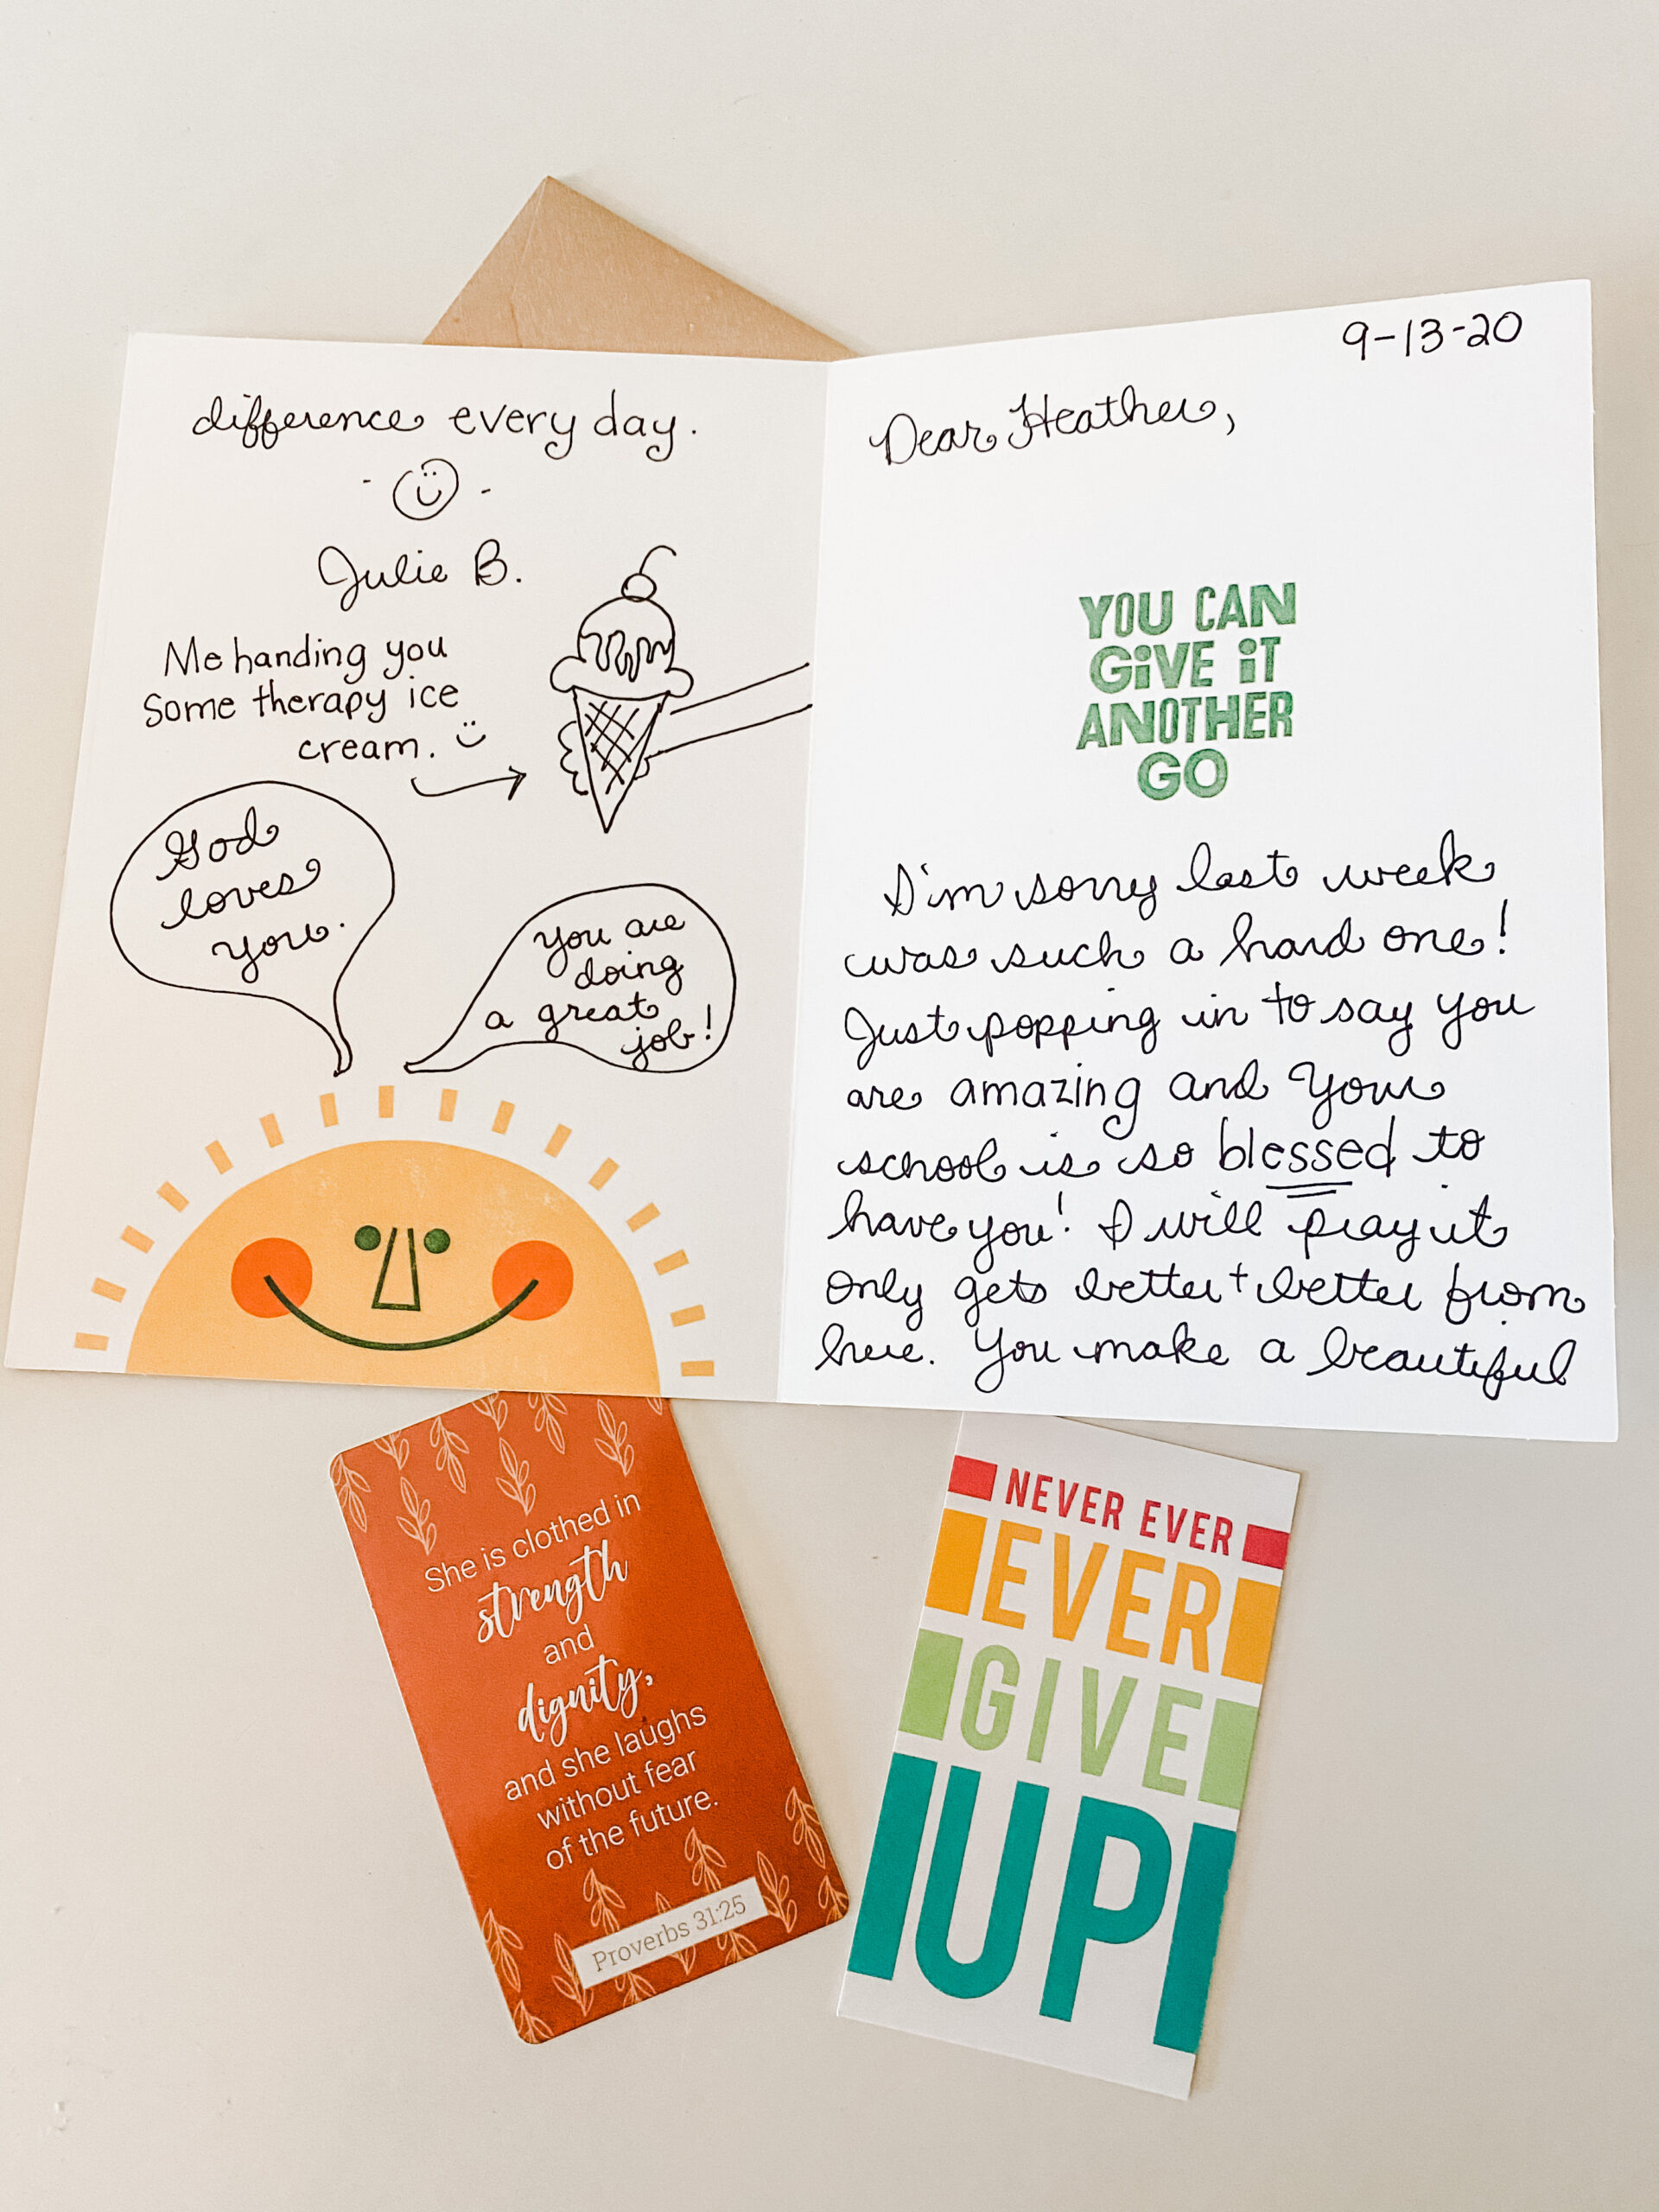 9-13-20
Dear Heather,
YOU CAN
GiVE iT
ANOTHER
GO
I'm sorry last week
was such a hard one!
Just popping in to say you
are amazing and your
school is so blessed to
have you! I will pray it
only gets better + better from
here. You make a beautiful
difference every day.
Julie B.
Me handing you
some therapy ice
cream.
God
loves
you.
You are
doing
a great
job!
She is clothed in
strength
and
dignity,
and she laughs
without fear
of the future.
Proverbs 31:25
NEVER EVER
EVER
GIVE
UP